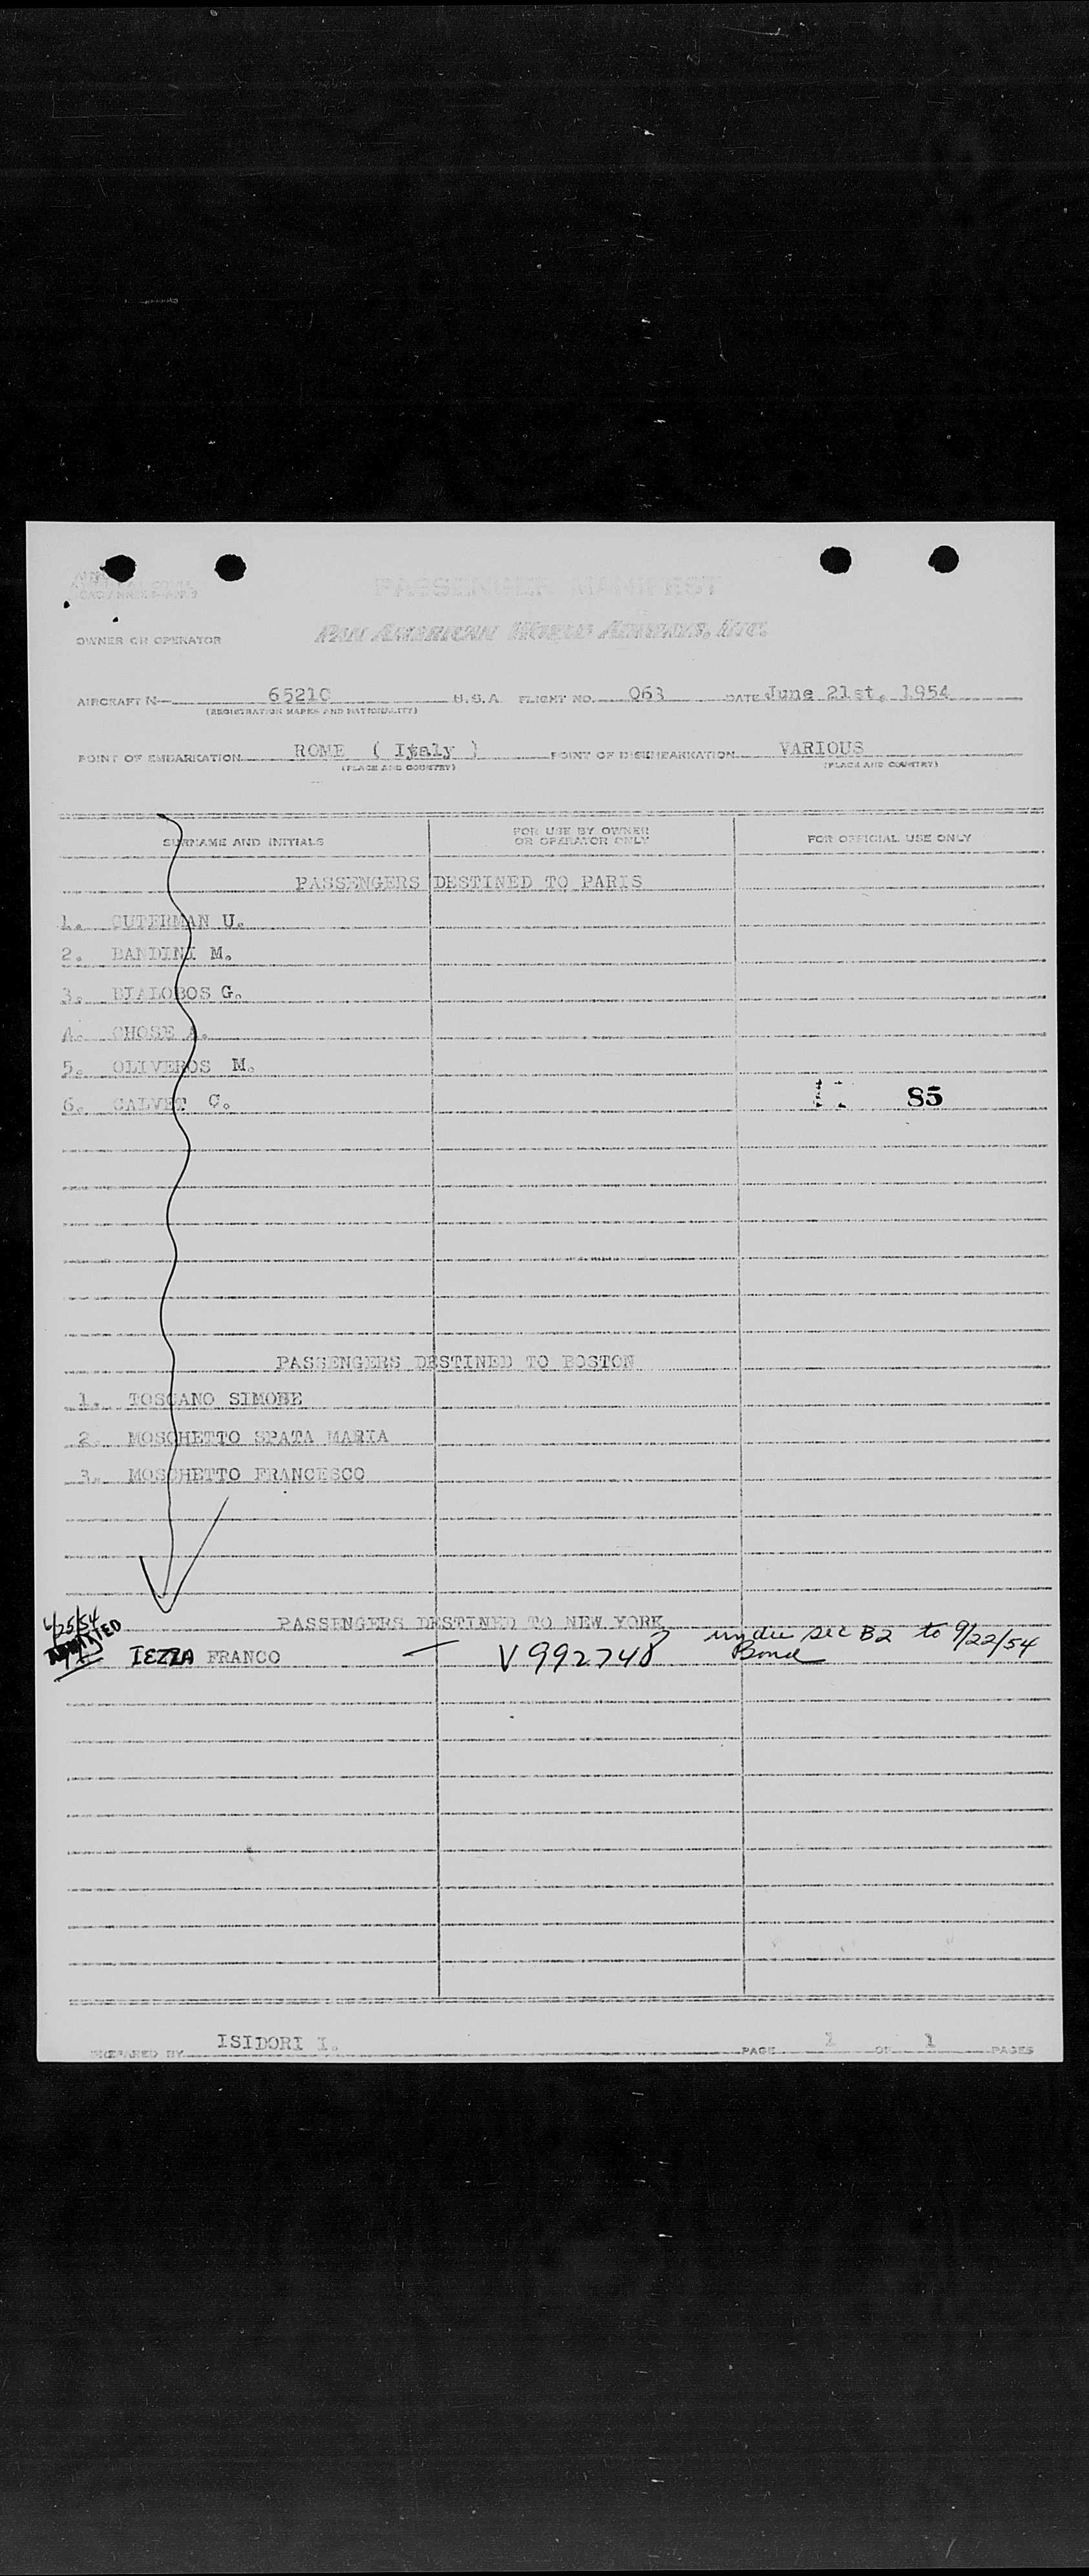 PASSENGER MANIFEST
OWNER OR OPERATOR PAN AMERICAN WORLD AIRWAYS, INC.
AIRCRAFT N— 65210 U.S.A. FLIGHT NO. Q63 DATE June 21st, 1954
(REGISTRATION MARKS AND NATIONALITY)
POINT OF EMBARKATION ROME ( Italy ) POINT OF DISEMBARKATION VARIOUS
(PLACE AND COUNTRY) (PLACE AND COUNTRY)
SURNAME AND INITIALS FOR USE BY OWNER OR OPERATOR ONLY FOR OFFICIAL USE ONLY
PASSENGERS DESTINED TO PARIS
1. GUTERMAN U.
2. BANDINI M.
3. BIALOBOS G.
4. CHOSE A.
5. OLIVEROS M.
6. CALVET C.
85
PASSENGERS DESTINED TO BOSTON
1. TOSCANO SIMONE
2. MOSCHETTO SPATA MARIA
3. MOSCHETTO FRANCESCO
6/25/54
ADMITTED
PASSENGERS DESTINED TO NEW YORK
IEZZA FRANCO — V992748 under sec B2 to 9/22/54
Bond
PREPARED BY ISIDORI I. PAGE 1 OF 1 PAGES